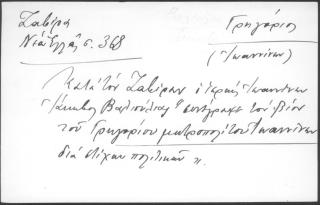 Ζαβίρα
Νέα Ἑλλάς σ. 368
Γρηγόριος
(Ἰωαννίνων)
Κατὰ τὸν Ζαβίραν ὁ ἱερεὺς Ἰωαννίνων
"Ἰάκωβος συνέγραψε τὸν βίον
τοῦ Γρηγορίου μητροπολίτου Ἰωαννίνων
διὰ στίχων πολιτικῶν